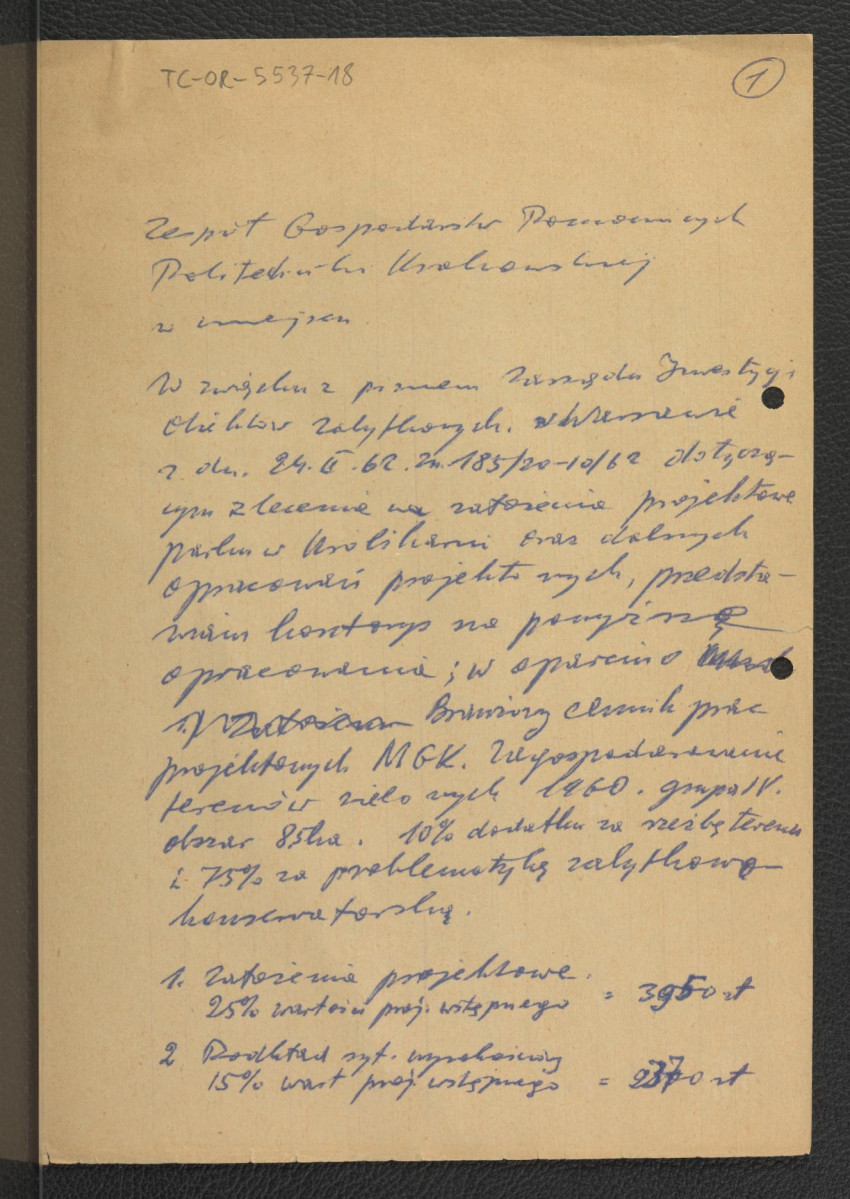 TC-OR-5537-18
1
Zespół Gospodarstw Pomocniczych
Politechniki Krakowskiej
w miejscu
W związku z pismem Zarządu Inwestycji
Obiektów Zabytkowych. w Warszawie
z dn. 24.II.62. zn. 185/20-10/62 dotyczą-
cym zlecenia na założenia projektowe
parku w Królikarni oraz dalszych
opracowań projektowych, przedsta-
wiam kosztorys na powyższe
opracowania; w oparciu o
1) Założenia Branżowy cennik prac
projektowych MGK. Zagospodarowanie
terenów zielonych 1960. grupa IV.
obszar 85ha. 10% dodatku za rzeźbę terenu
i 75% za problematykę zabytkową
konserwatorską.
1. Założenia projektowe.
25% wartości proj. wstępnego = 3950 zł
2 Podkład syt. wysokościowy
15% wart proj. wstępnego = 2370 zł